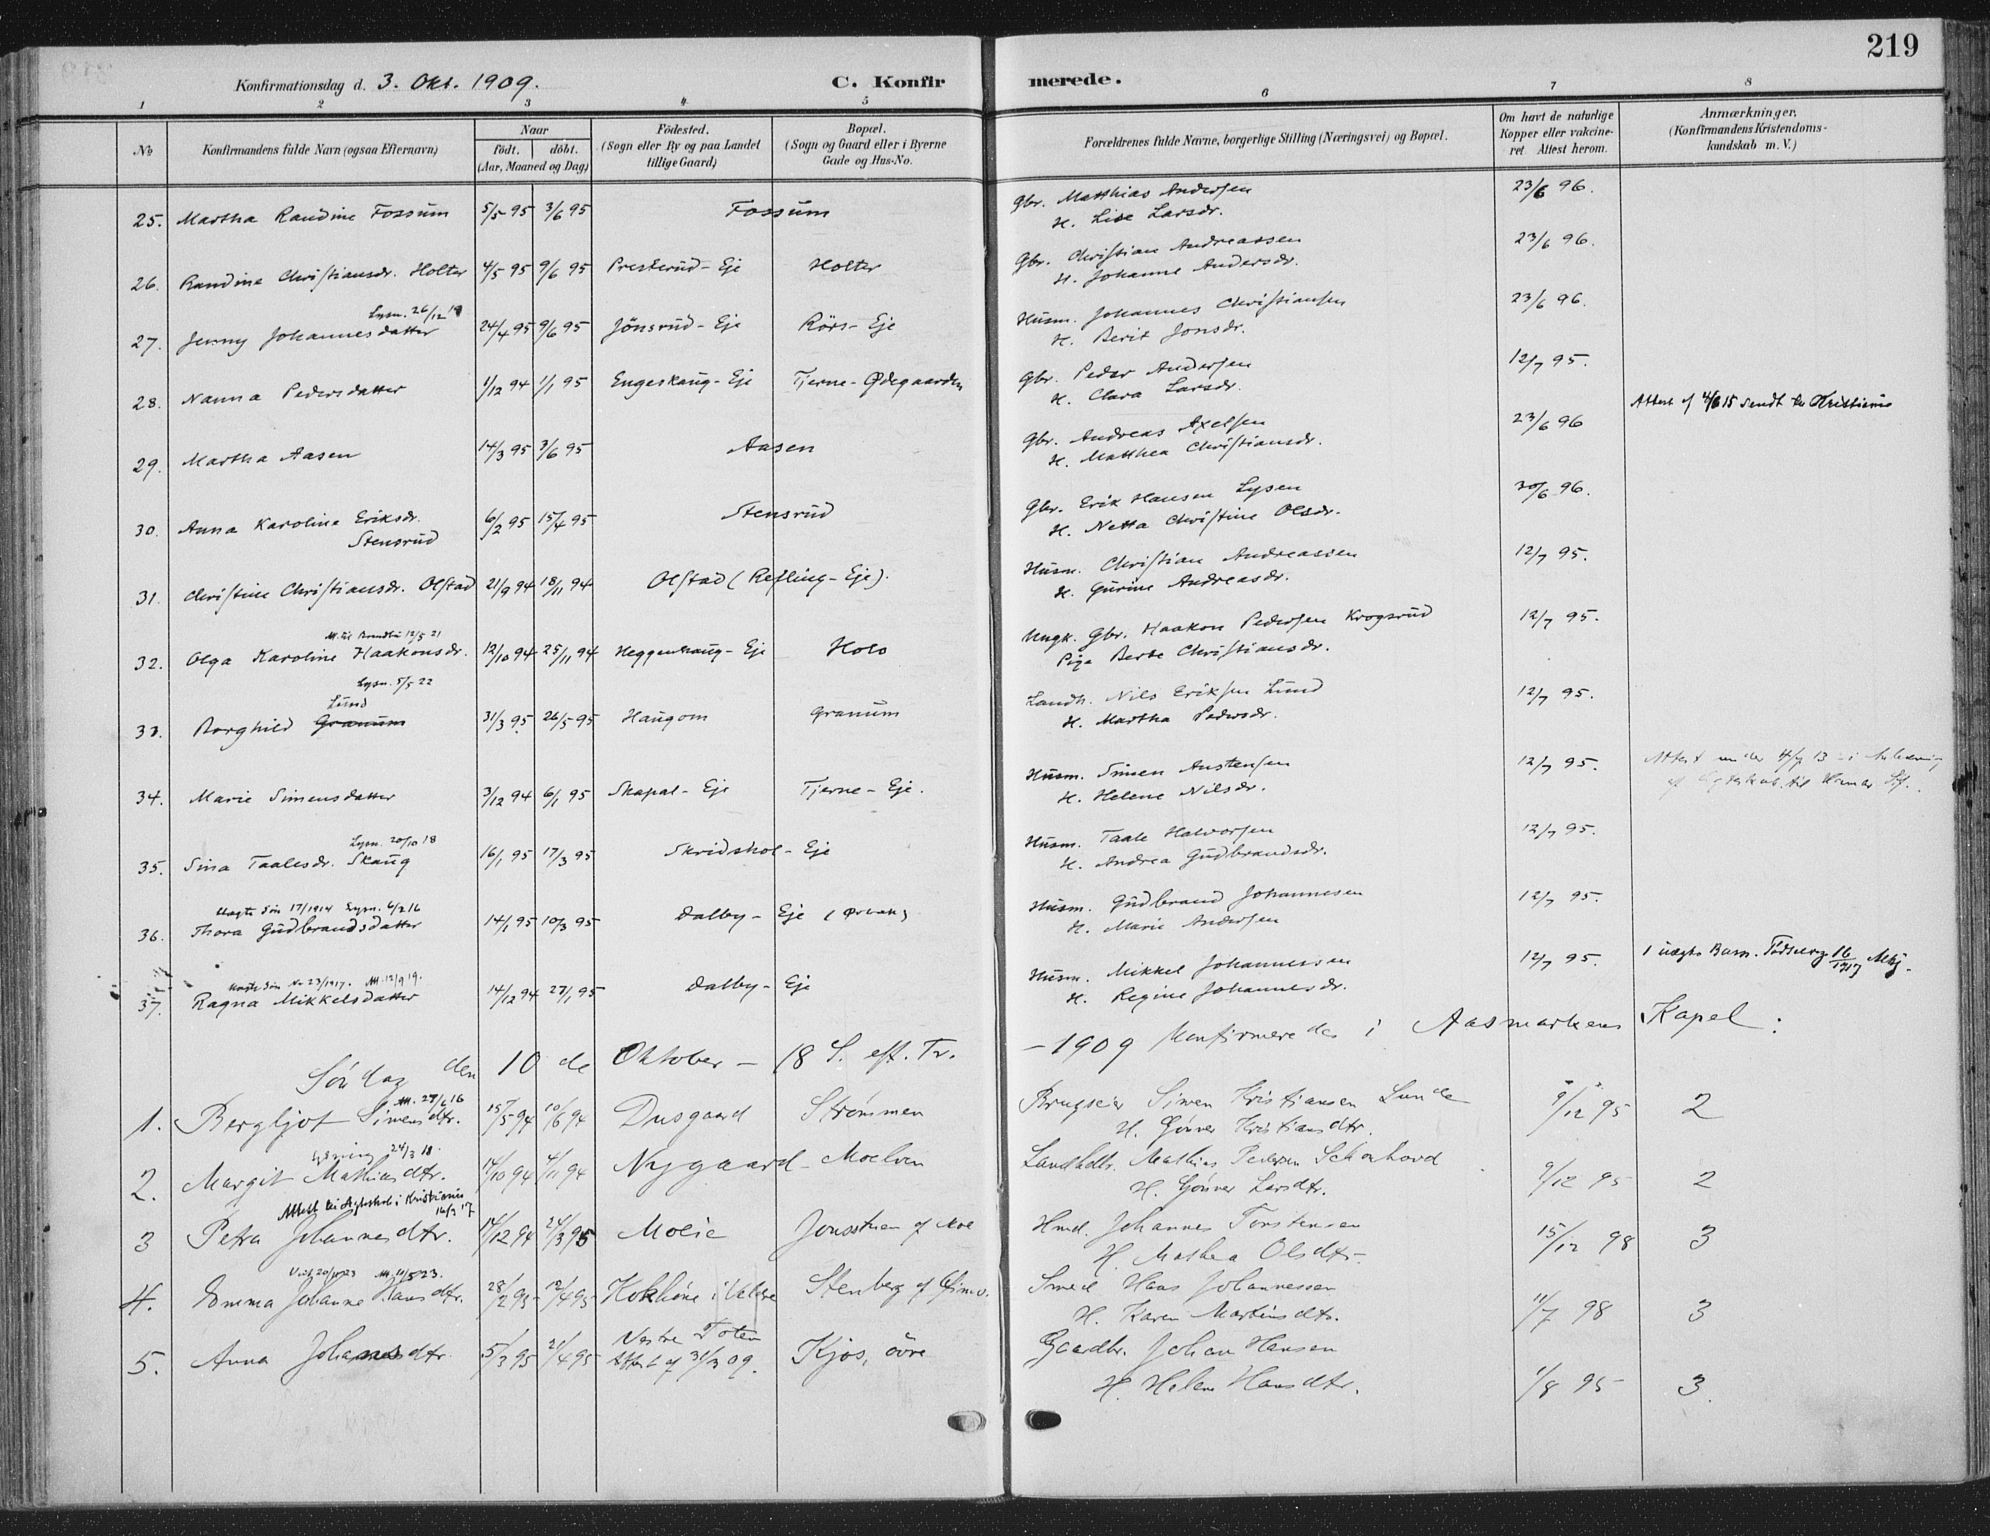 219
Konfirmationsdag d. 3. Okt. 1909.
C. Konfirmerede.
1 2 3 4 5 6 7 8
No
Konfirmandens fulde Navn (ogsaa Efternavn)
Naar
født. døbt.
(Aar, Maaned og Dag)
Fødested.
(Sogn eller By og paa Landet
tillige Gaard)
Bopæl.
(Sogn og Gaard eller i Byerne
Gade og Hus-No.
Forældrenes fulde Navne, borgerlige Stilling (Næringsvei) og Bopæl.
Om havt de naturlige
Kopper eller vakcine-
ret Attest herom.
Anmærkninger.
(Konfirmandens Kristendoms-
kundskab m. V.)
25. Martha Randine Fossum 5/5 95 3/6 95 Fossum Gbr. Matthias Andersen 23/6 96.
H. Lise Larsdr.
26. Randine Christiansdr. Holter 4/5 95 9/6 95 Presterud-Eje Holter Gbr. Christian Andreassen 23/6 96.
H. Johanne Andersdr.
Lysn. 26/12 19
27. Jenny Johannesdatter 24/4 95 9/6 95 Jönsrud-Eje Rörs-Eje Husm. Johannes Christiansen 23/6 96.
H. Berit Jonsdr.
28. Nanna Pedersdatter 1/12 94 1/1 95 Engeskaug-Eje Tjerne-Ødegaarden Gbr. Peder Andersen 12/7 95.
H. Clara Larsdr.
Attest af 4/6 15 sendt til Kristiania
29. Martha Aasen 14/3 95 3/6 95 Aasen Gbr. Andreas Axelsen 23/6 96
H. Matthea Christiansdr.
30. Anna Karoline Eriksdr. 6/2 95 15/4 95 Stensrud Gbr. Erik Hansen Lysen 30/6 96.
Stensrud H. Netta Christine Olsdr.
31. Christine Christiansdr. Olstad 21/9 94 18/11 94 Olstad (Refling-Eje). Husm. Christian Andreassen 12/7 95.
H. Gurine Andreasdr.
M. til Brandbu 12/5 21
32. Olga Karoline Haakonsdr. 12/10 94 25/11 94 Heggenhaug-Eje Holo Ungk. Gbr. Haakon Pedersen Krogsrud 12/7 95.
Pige Berte Christiansdr.
Lysn. 5/5 22
Lund
33. Borghild Granum 31/3 95 26/5 95 Haugom Granum Landh. Nils Eriksen Lund 12/7 95.
H. Martha Pedersdr.
34. Marie Simensdatter 3/12 94 6/1 95 Skapal-Eje Tjerne-Eje. Husm. Simen Austensen 12/7 95. Attest
H. Helene Nilsdr.
Lysn. 20/10 18
35. Sina Taalesdr. Skaug 16/1 95 17/3 95 Skridshol-Eje Husm. Taale Halvorsen 12/7 95.
H. Andrea Gudbrandsdr.
Uægte Søn 17/1914 Lysn. 6/2 16
36. Thora Gudbrandsdatter 14/1 95 10/3 95 Dalby-Eje Husm. Gudbrand Johannesen 12/7 95.
H. Marie Andersen
Uægte Søn No 23/1917. M. 12/9 19.
37. Ragna Mikkelsdatter 14/12 94 27/1 95 Dalby-Eje Husm. Mikkel Johannessen 12/7 95. 1 uægte Barn. Fødselsreg. 16/1917
H. Regine Johannesdr.
Søndag den 10 de Oktober - 18 S. eft. Tr. - 1909 Konfirmeredes i Aasmarkens Kapel:
M. 27/6 16
1. Bergljot Simensdtr. 15/5 94 10/6 94 Dusgaard Strømmen Brugseier Simen Kristiansen Lunde 9/12 95 2
H. Gunver Kristiansdtr.
Lysning 24/3 18.
2. Margit Mathiasdtr. 14/10 94 4/11 94 Nygaard - Moelven Landhdlr. Mathias Pedersen 9/12 95 2
H. Gunver Larsdtr.
Attest til Ægteskab i Kristiania
3 Petra Johannesdtr. 14/12 94 24/3 95 Moeie af Moe Hmd. Johannes Torstensen 15/12 98 3
H. Mathea Olsdtr.
4. Emma Johanne Hansdtr. 28/2 95 12/4 95 i Valdre Stenberg af Smed Hans Johannessen 11/7 98 3
H. Karen Martinsdtr.
5. Anna Johansdtr. 5/3 95 21/4 95 Vestre Toten Kjos, övre Gaardbr. Johan Hansen 1/8 95 3.
Attest af 31/3 09. H. Helene Hansdtr.